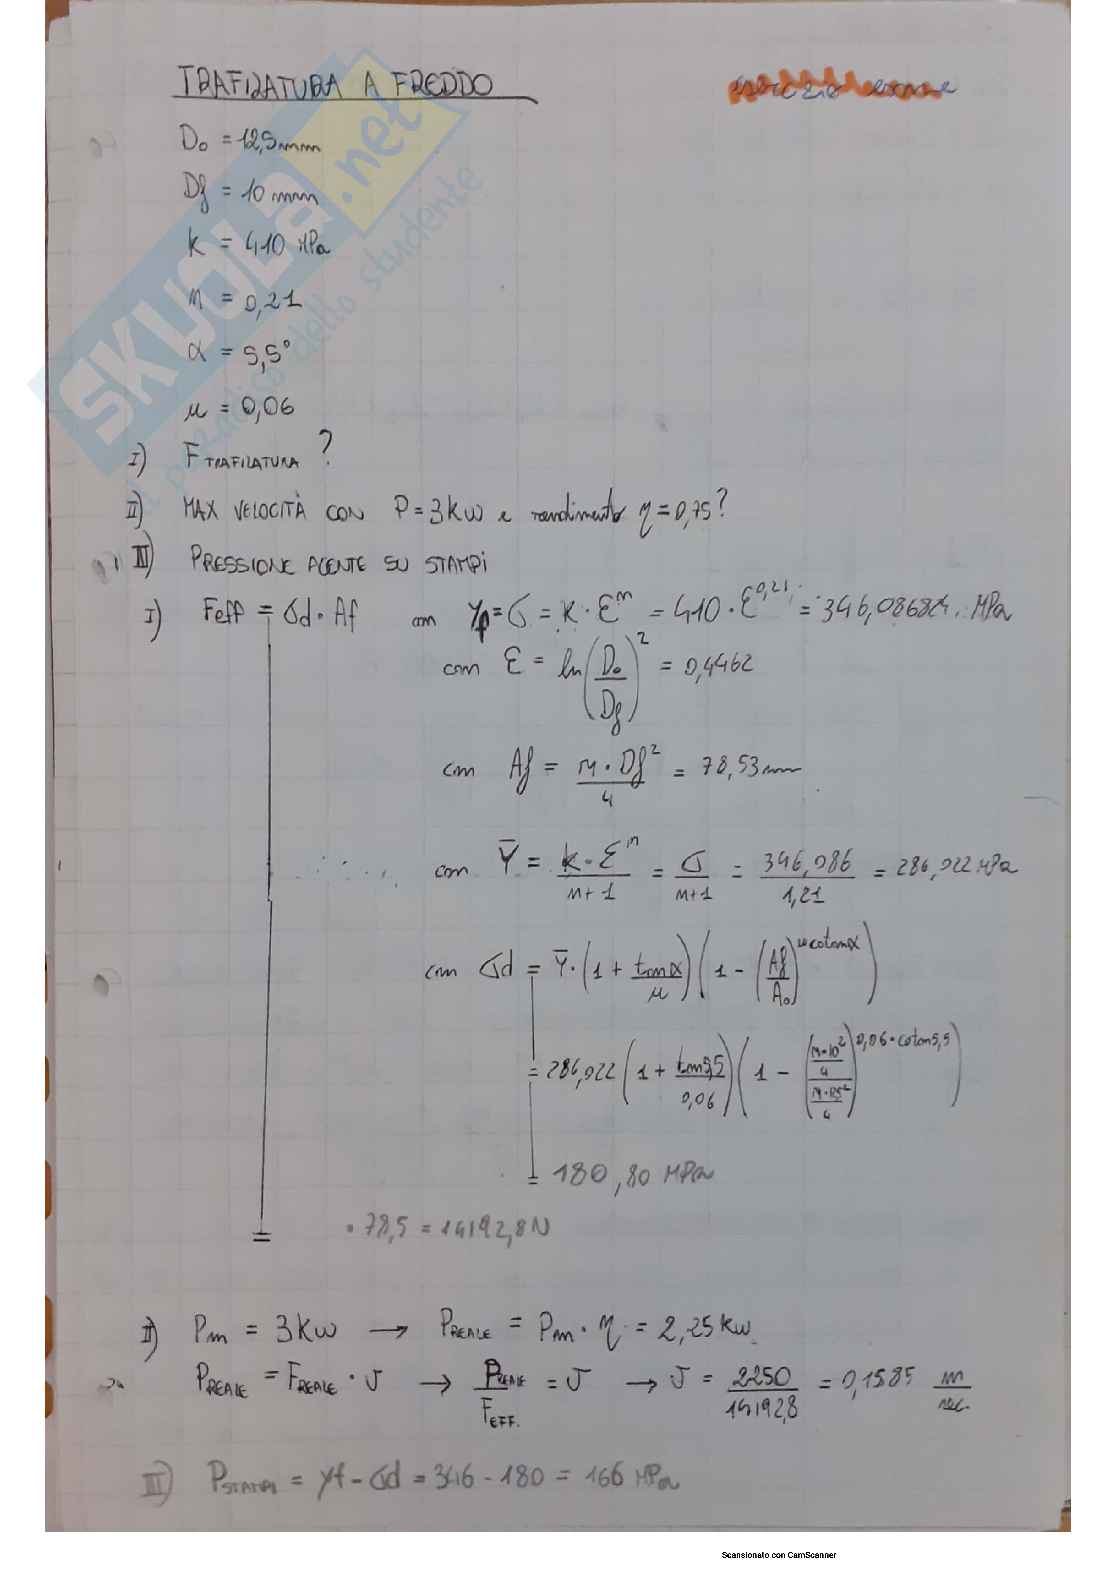 TRAFILATURA A FREDDO
esercizio esame
D₀ = 12,5mm
Df = 10 mm
K = 410 MPa
n = 0,21
α = 5,5°
μ = 0,06
I) F TRAFILATURA ?
II) MAX VELOCITÀ CON P=3KW e rendimento η=0,75?
III) PRESSIONE AGENTE SU STAMPI
I) Feff = σd · Af con Yf = σ = K · ε^n = 410 · ε^0,21 = 346,086824 MPa
con ε = ln(D₀/Df)² = 0,4462
con Af = π · Df²/4 = 78,53mm
con Ȳ = K · ε^n/n+1 = σ/n+1 = 346,086/1,21 = 286,022 MPa
con σd = Ȳ · (1 + tanα/μ)(1 - (Af/A₀)^μcotanα)
= 286,022 (1 + tan5,5/0,06)(1 - (π·10²/4/π·12,5²/4)^0,06·cotan5,5)
= 180,80 MPa
= · 78,5 = 14192,8N
II) Pm = 3KW → P REALE = Pm · η = 2,25 KW
P REALE = F REALE · v → P REALE/F EFF. = v → v = 2250/14192,8 = 0,1585 m/sec.
III) P STAMPI = Yf - σd = 346 - 180 = 166 MPa
SKUOLA.net
il paradiso dello studente
Scansionato con CamScanner